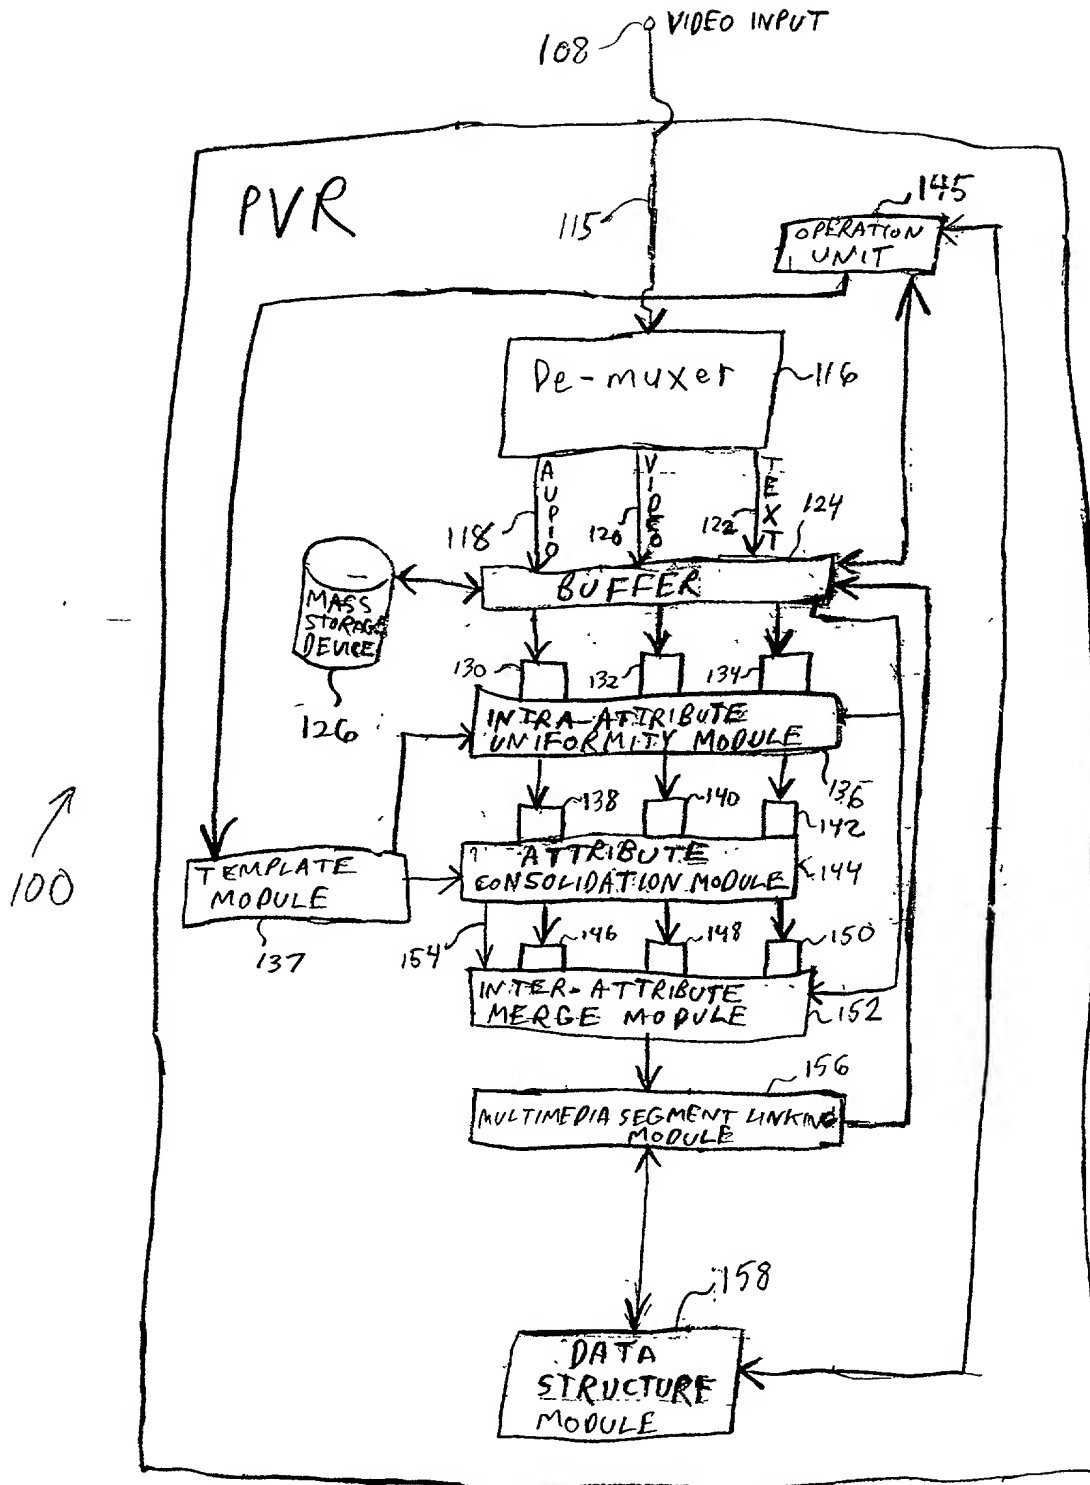 VIDEO INPUT
108
PVR
115
145
OPERATION
UNIT
De-muxer
116
AUDIO
VIDEO
TEXT
118
120
122
124
BUFFER
MASS
STORAGE
DEVICE
126
130
132
134
INTRA-ATTRIBUTE
UNIFORMITY MODULE
136
138
140
142
100
TEMPLATE
MODULE
137
ATTRIBUTE
CONSOLIDATION MODULE
144
154
146
148
150
INTER-ATTRIBUTE
MERGE MODULE
152
156
MULTIMEDIA SEGMENT LINKING
MODULE
158
DATA
STRUCTURE
MODULE